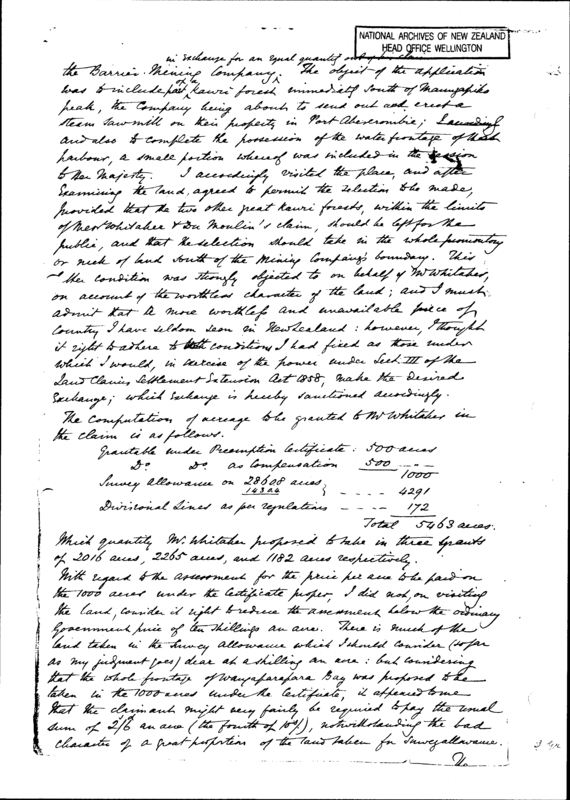 NATIONAL ARCHIVES OF NEW ZEALAND
HEAD OFFICE WELLINGTON
in exchange for an equal quantity out of his claim
the Barrier Mining Company. The object of the application
was to include part of a Kauri forest immediately South of
peak, the Company being about to send out and erect a
Steam Saw mill on their property in Port Abercrombie;
and also to complete the possession of the water frontage of that
harbour, a small portion whereof was included in the cession
to Her Majesty. I accordingly visited the place, and after
examining the land, agreed to permit the selection to be made,
provided that the two other great Kauri forests, within the limits
of Mess Whitaker & Du Moulin's claim, should be left for the
public, and that the selection should take in the whole promontory
or neck of land South of the Mining Company's boundary. This
condition was strongly objected to on behalf of Mr Whitaker,
on account of the worthless character of the land; and I must
admit that a more worthless and unavailable piece of
Country I have seldom seen in New Zealand: however, I thought
it right to adhere to the conditions I had fixed as those under
which I would, in exercise of the power under Sect. III of the
Land Claims Settlement Extension Act 1858, make the desired
Exchange; which Exchange is hereby sanctioned accordingly.
The computation of acreage to be granted to Mr Whitaker in
the claim is as follows.
Grantable under Preemption Certificate: 500 acres
Do Do as Compensation 500
1000
Survey allowance on 28608 acres
14304 4291
Divisional Lines as per regulations 172
Total 5463 acres.
Which quantity Mr Whitaker proposed to take in three grants
of 2016 acres, 2265 acres, and 1182 acres respectively.
With regard to the assessment for the price per acre to be paid on
the 1000 acres under the Certificate proper, I did not, on visiting
the land, consider it right to reduce the assessment below the ordinary
Government price of ten shillings an acre. There is much of the
land taken in the Survey allowance which I should consider (so far
as my judgment goes) dear at a shilling an acre: but considering
that the whole frontage of Wangaparapara Bay was proposed to be
taken in the 1000 acres under the Certificate, it appeared to me
that the claimant might very fairly be required to pay the usual
sum of 2/6 an acre (the fourth of 10/), notwithstanding the bad
character of a great proportion of the land taken for Survey allowance.